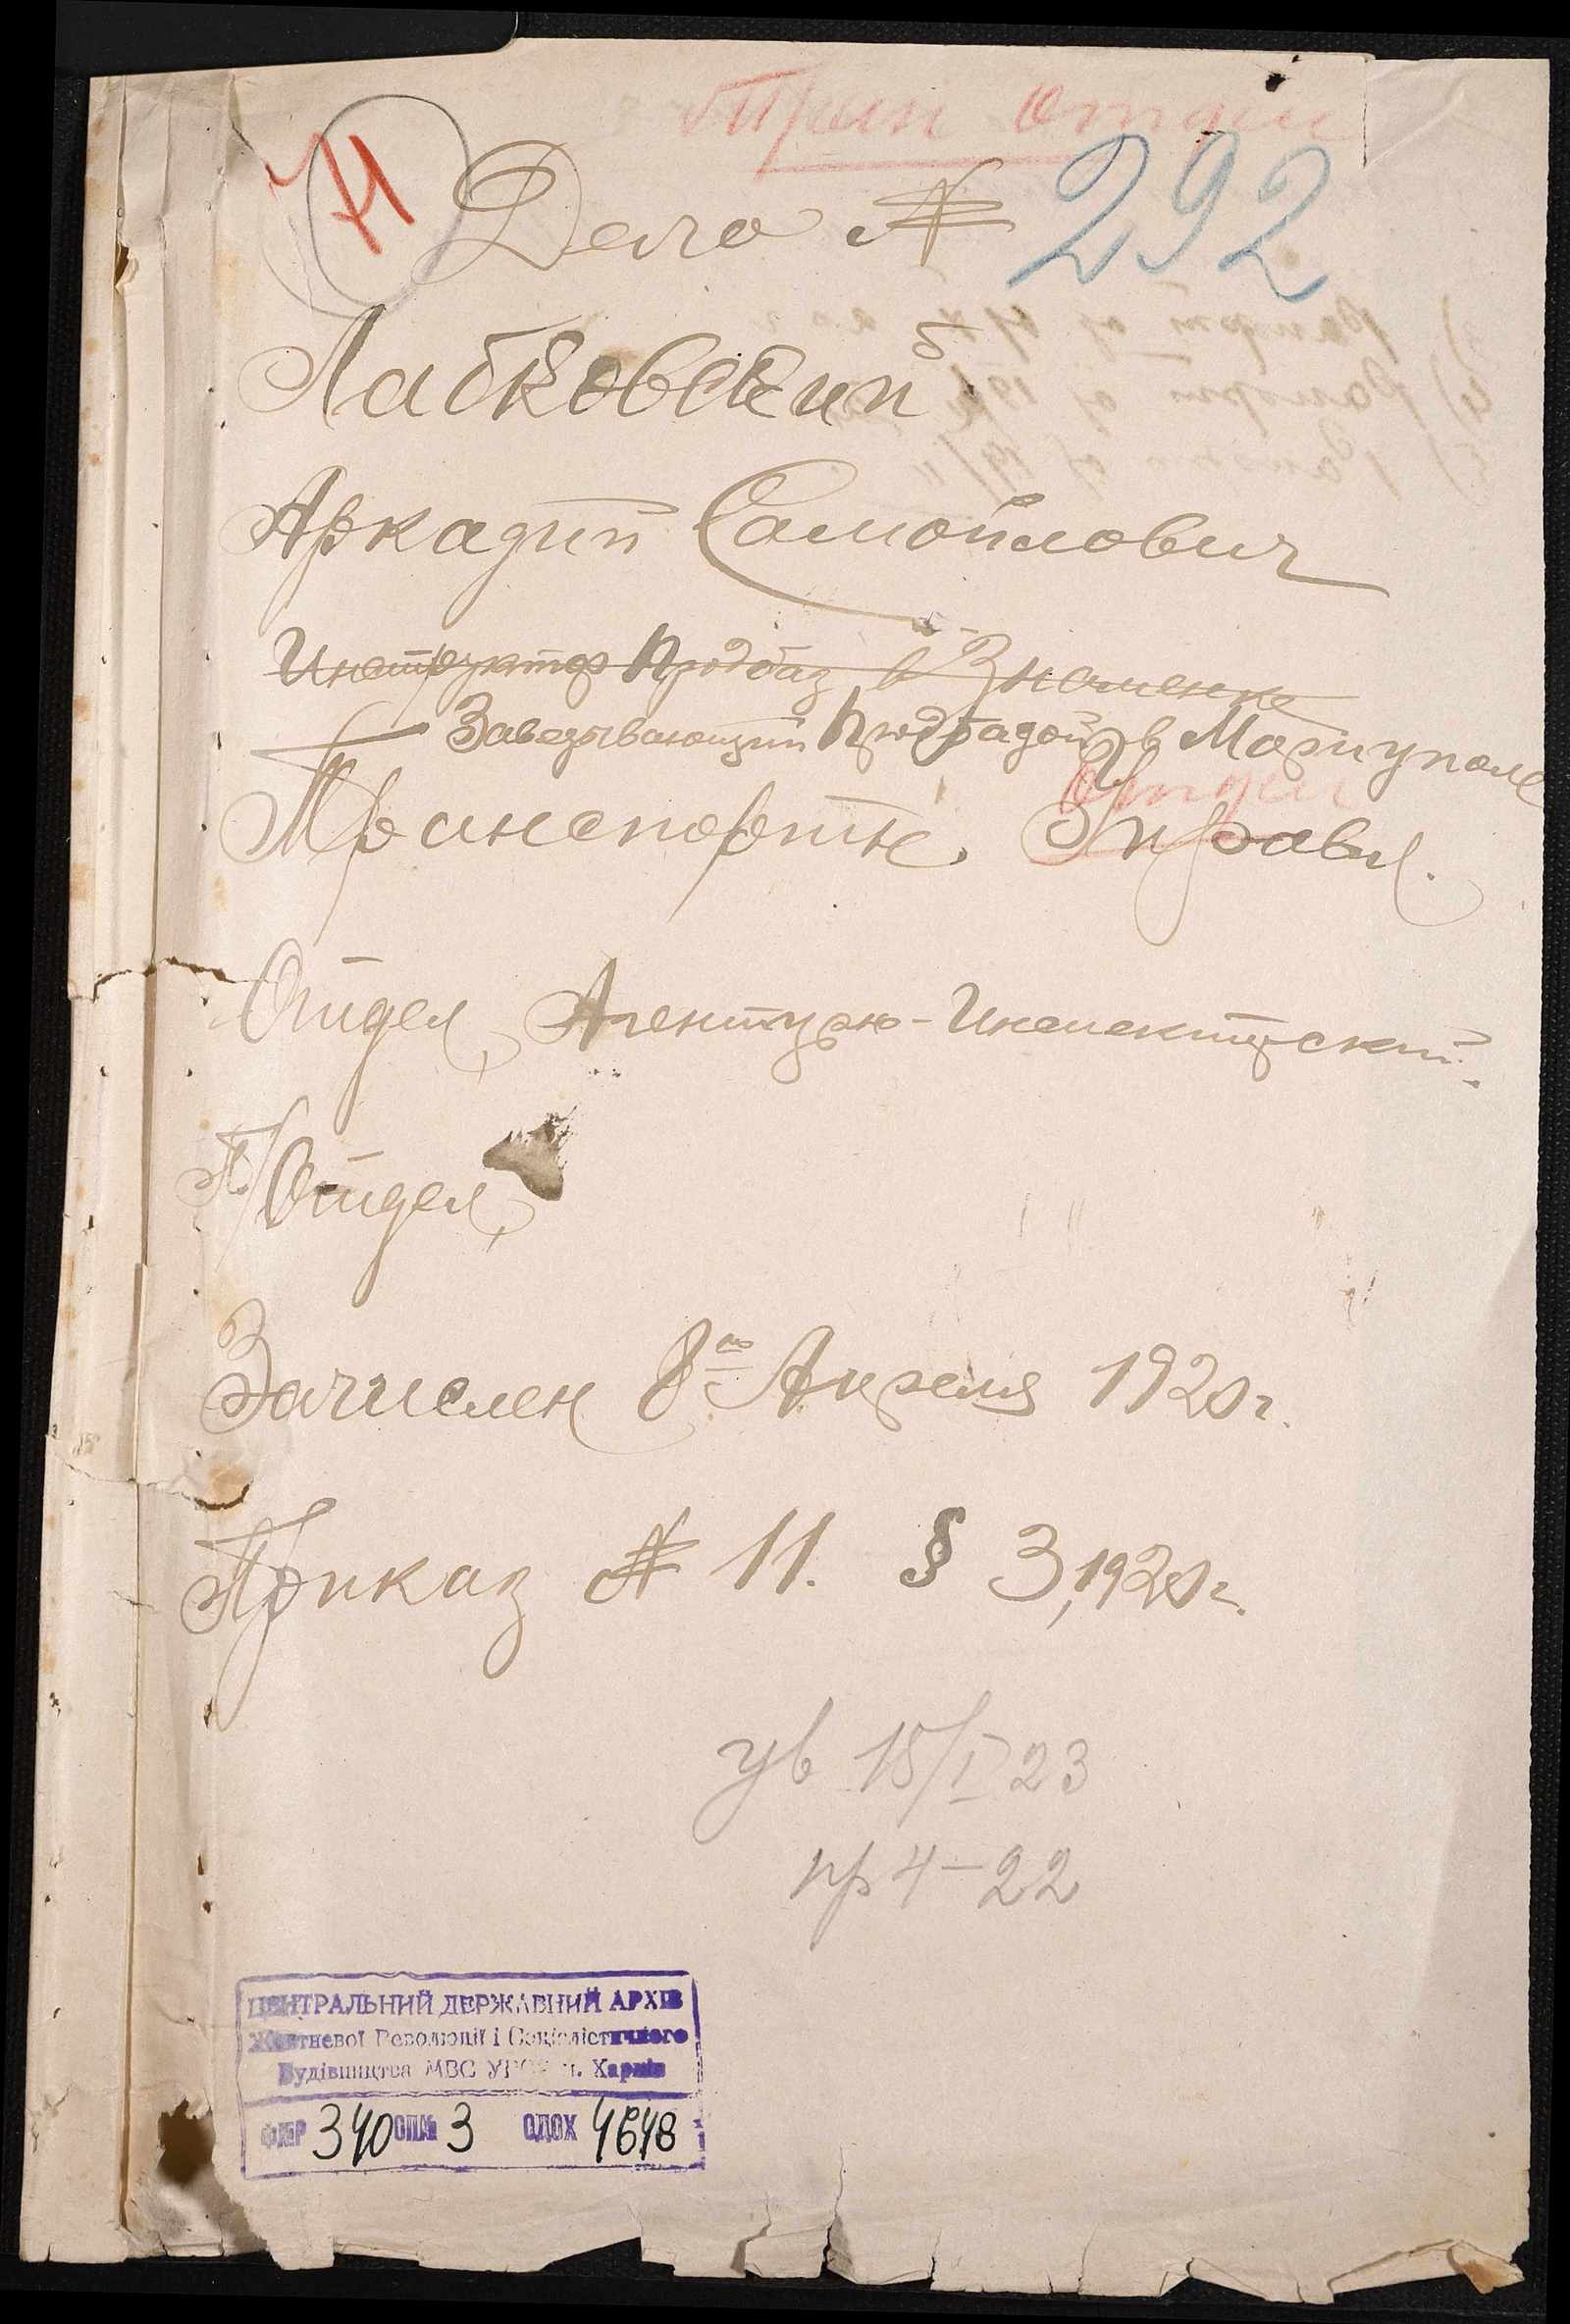 Тран Отдел
Н
Дело № 292
Лабковский
Аркадий Самойлович
Инструктор Продбаз в Знаменке
Заведывающий Продбазой в Мариуполе
Отдел
Транспортн. Управл.
Отдел Агентурно-Инспекторский.
П/Отдел
Зачислен 8го Апреля 1920г.
Приказ № 11. § 3, 1920г.
ув 15/I 23
пр 4-22
ЦЕНТРАЛЬНИЙ ДЕРЖАВНИЙ АРХІВ
Жовтневої Революції і Соціалістичного
Будівництва МВС УРСР м. Харків
ФР 340 ОП№ 3 ОДОХ 4648